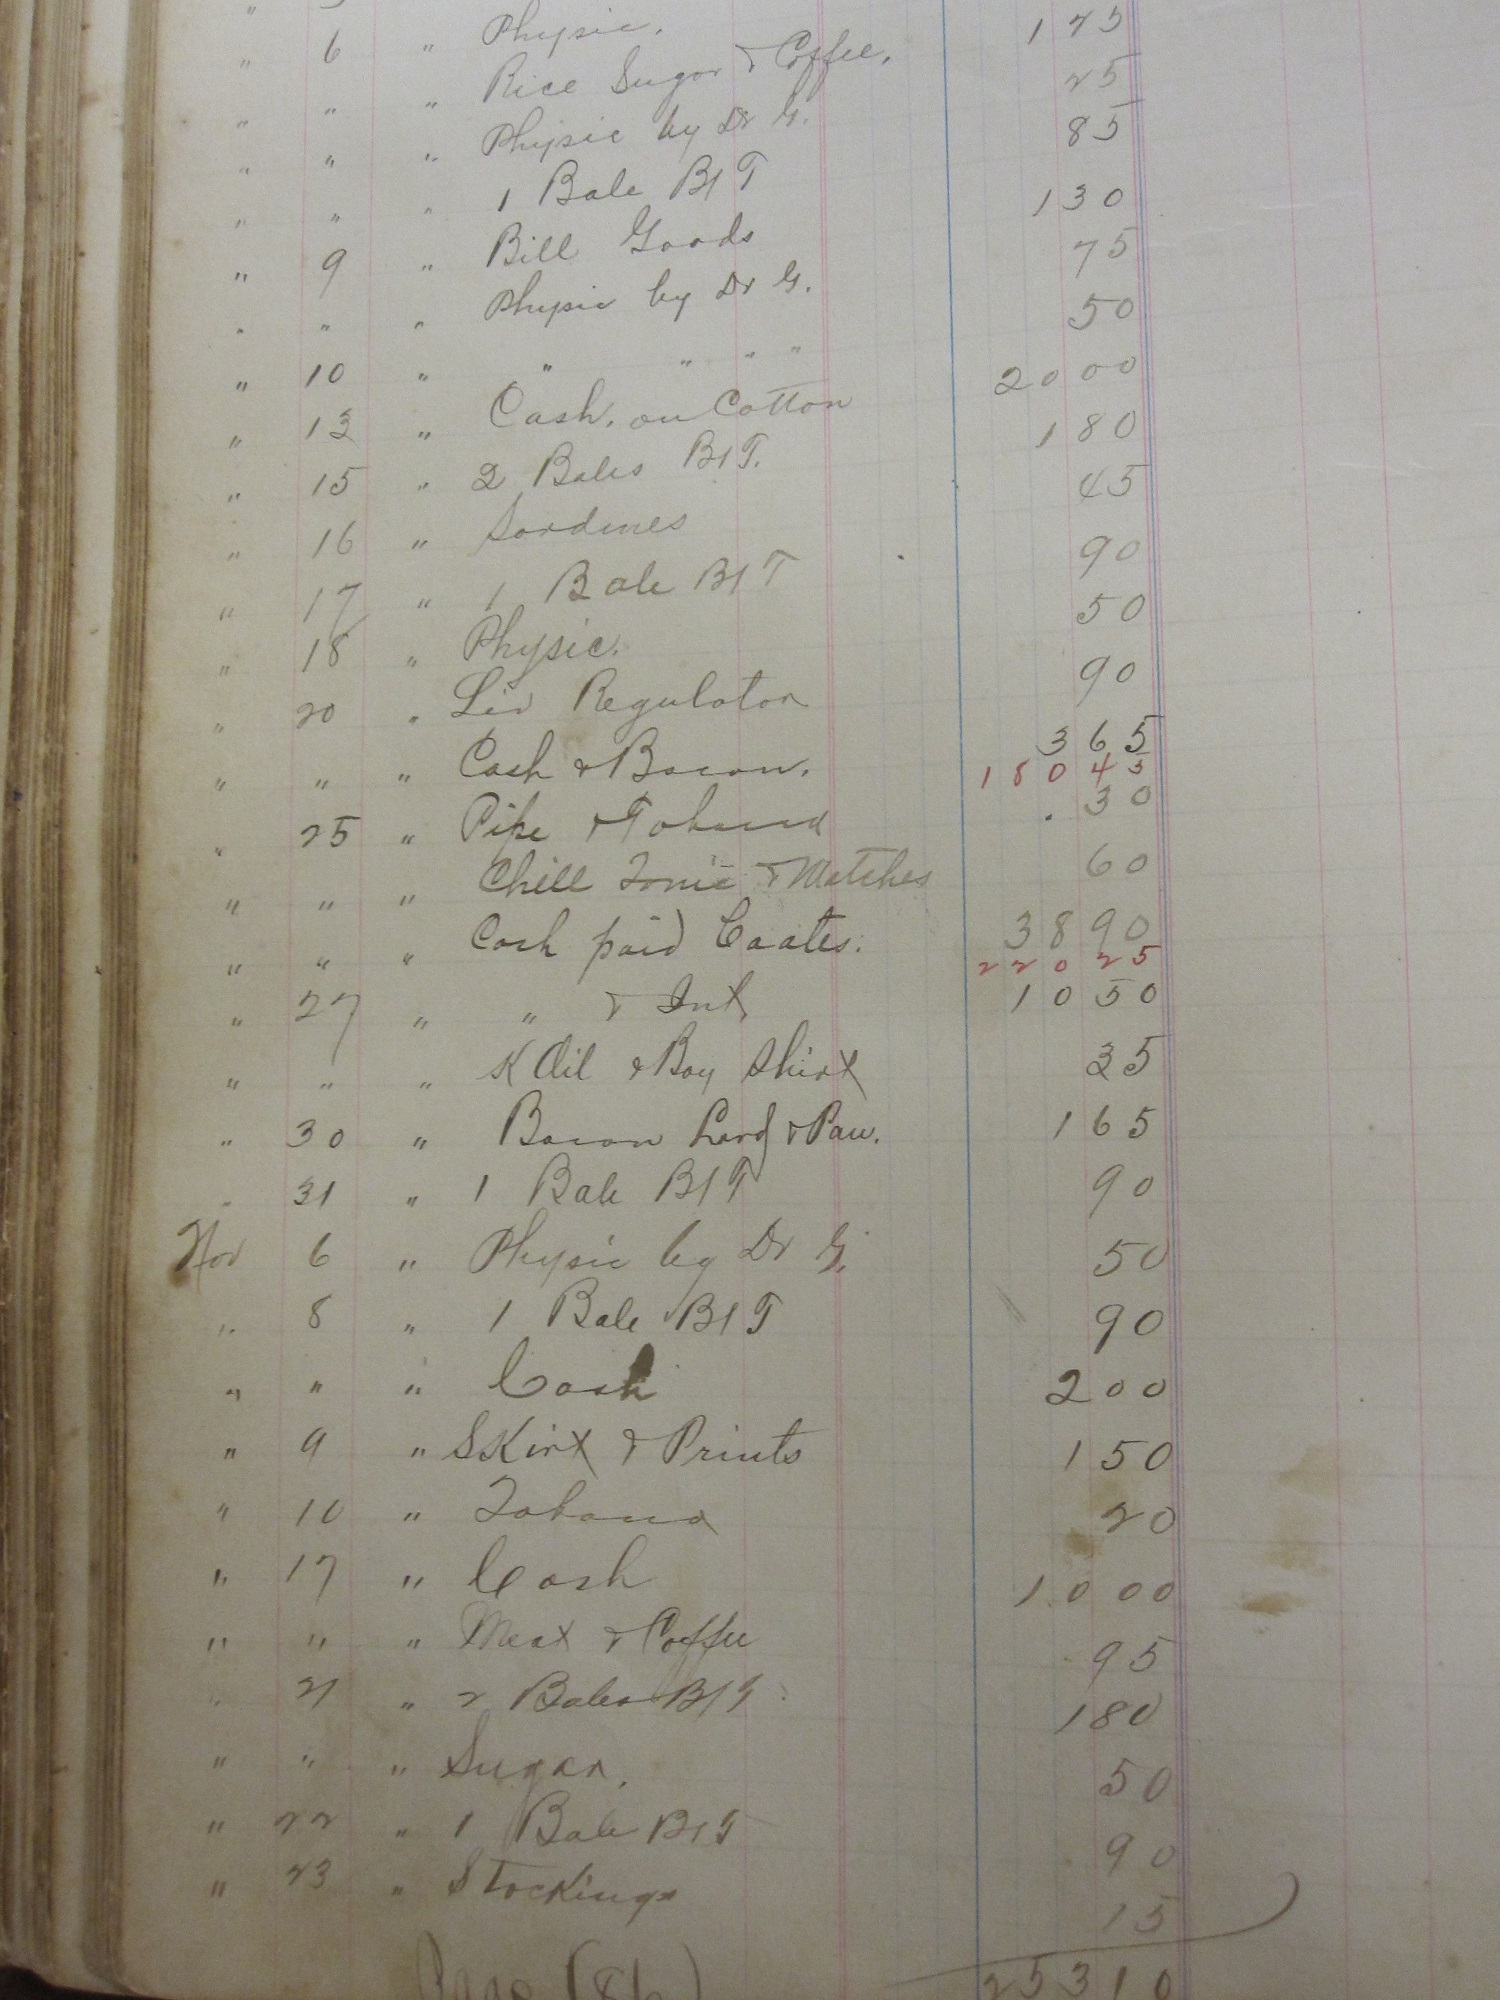 " 6 " Physic.
" " " Rice Sugar & Coffee. 1 75
" " " Physic by Dr G. 25
" " " 1 Bale B1T 85
" 9 " Bill Goods 1 30
" " " Physic by Dr G. 75
" 10 " " " " " 50
" 13 " Cash. on Cotton 20 00
" 15 " 2 Bales B1T. 1 80
" 16 " Sardines 45
" 17 " 1 Bale B1T 90
" 18 " Physic. 50
" 20 " Liv Regulator 90
" " " Cash & Bacon. 3 65
180 45
" 25 " Pipe & Tobacco . 30
" " " Chill Tonic & Matches 60
" " " Cash paid Coates. 38 90
220 25
" 27 " " & Int 10 50
" " " K Oil & Boy Shirt 35
" 30 " " Bacon Lard & Pau. 1 65
" 31 " 1 Bale B1T 90
Nov 6 " Physic by Dr G. 50
" 8 " 1 Bale B1T 90
" " " Cash 2 00
" 9 " SKirt & Prints 1 50
" 10 " Tobacco 20
" 17 " Cash 10 00
" " " Meat & Coffee 95
" 21 " 2 Bales B1T 1 80
" " " Sugar. 50
" 22 " 1 Bale B1T 90
" 23 " Stockings 15
Page (86) 253 10